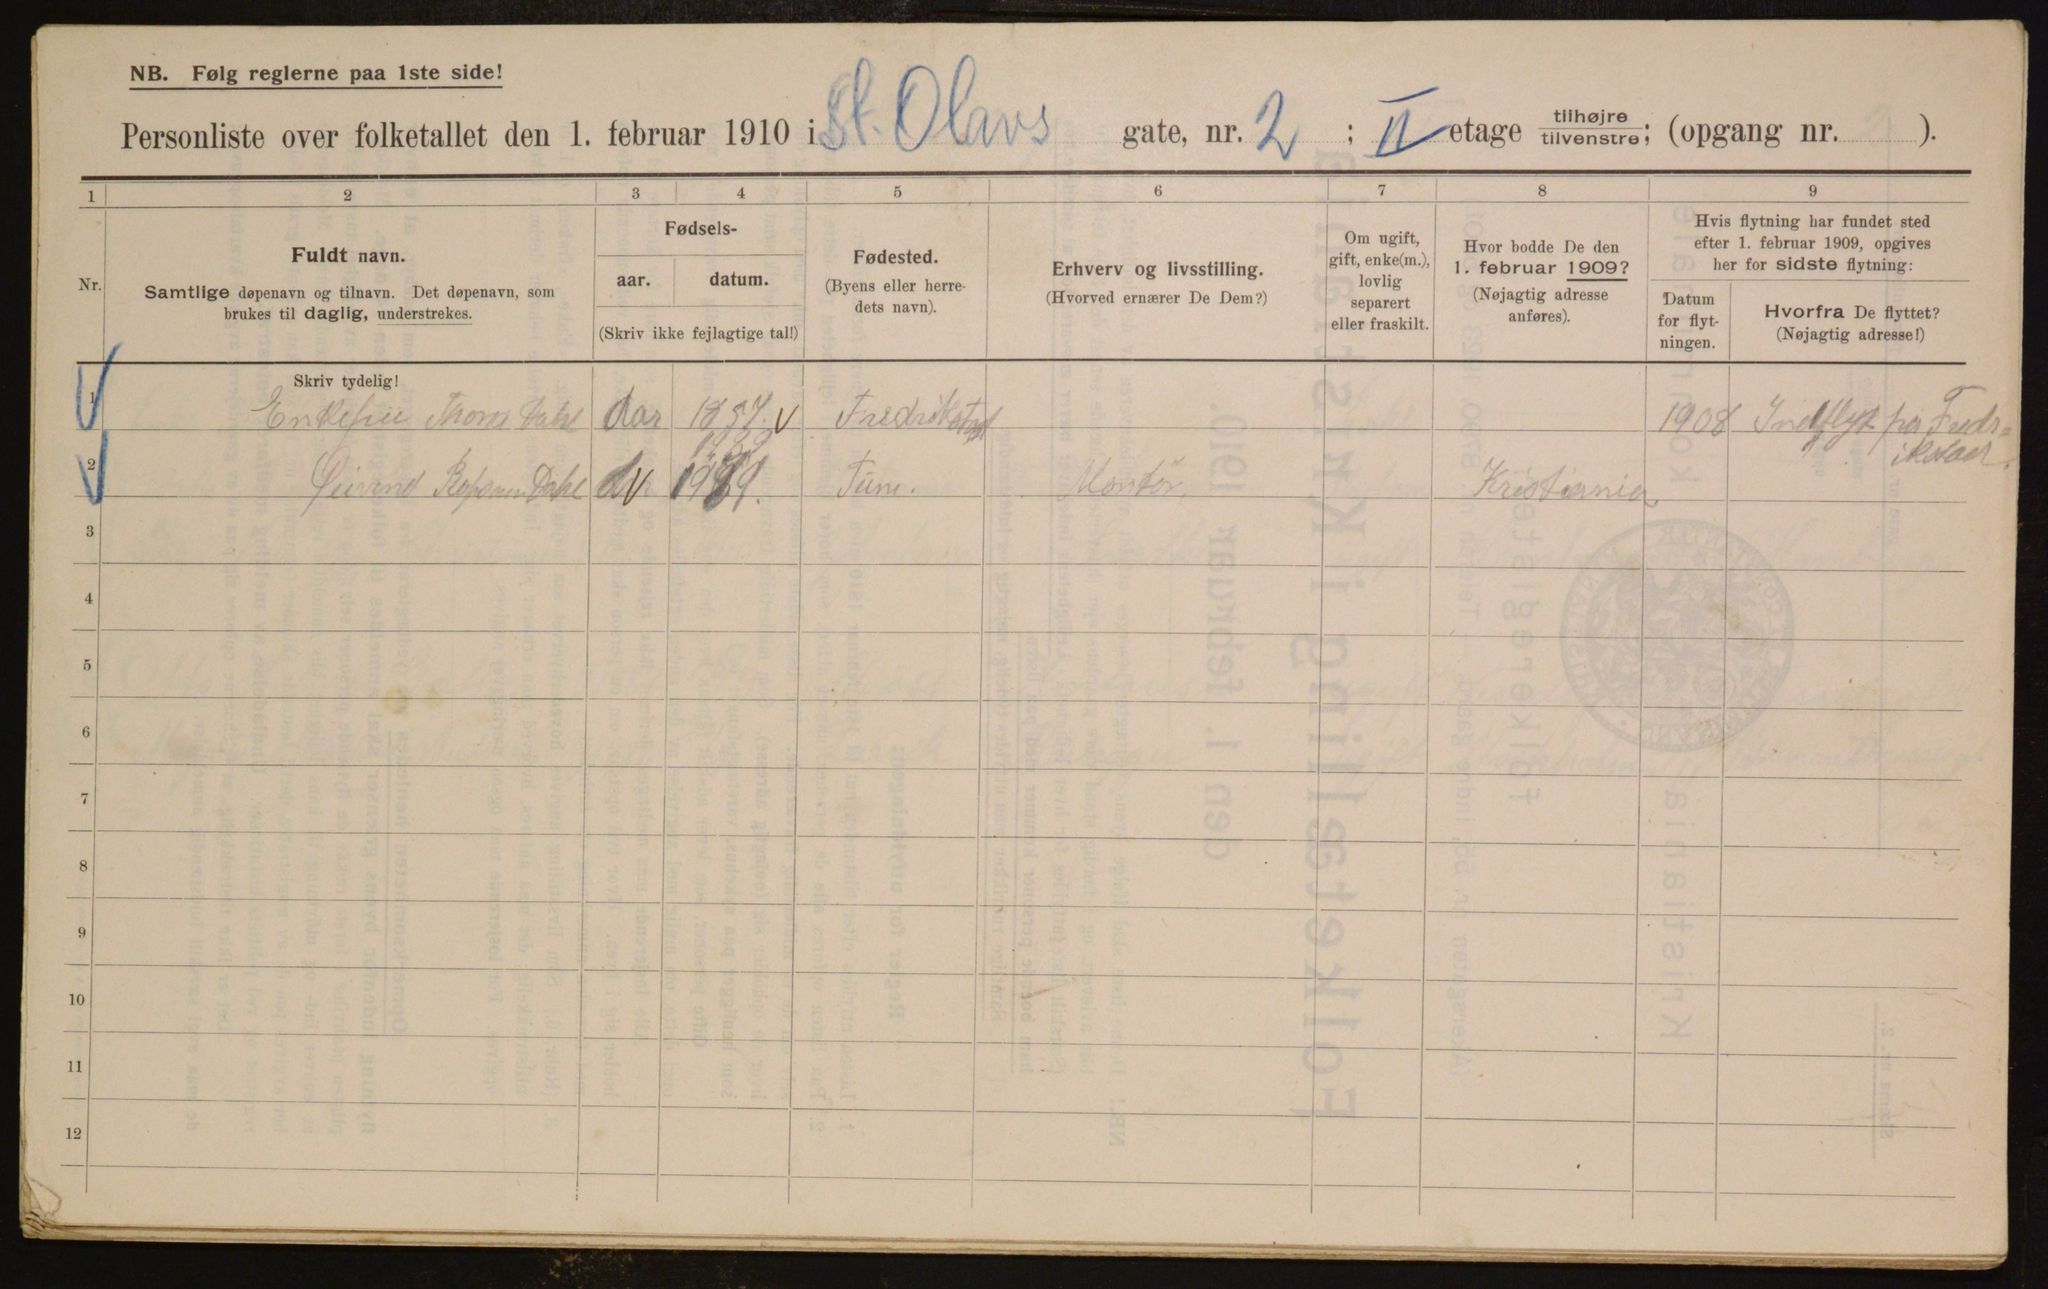 NB. Følg reglerne paa 1ste side!
Personliste over folketallet den 1. februar 1910 i St. Olavs gate, nr. 2 ; II etage tilhøjre / tilvenstre; (opgang nr. ).
1 2 3 4 5 6 7 8 9
Nr.
Fuldt navn.
Samtlige døpenavn og tilnavn. Det døpenavn, som
brukes til daglig, understrekes.
Fødsels-
aar. datum.
(Skriv ikke fejlagtige tal!)
Fødested.
(Byens eller herre-
dets navn).
Erhverv og livsstilling.
(Hvorved ernærer De Dem?)
Om ugift,
gift, enke(m.),
lovlig
separert
eller fraskilt.
Hvor bodde De den
1. februar 1909?
(Nøjagtig adresse
anføres).
Hvis flytning har fundet sted
efter 1. februar 1909, opgives
her for sidste flytning:
Datum
for flyt-
ningen.
Hvorfra De flyttet?
(Nøjagtig adresse!)
Skriv tydelig!
1 Thora Dahl Aar 1857 v Fredrikstad 1908 Indflyt fra Fredr=
ikstad.
2 Øivend Dahl v Tune. Montør Kristiania.
3
4
5
6
7
8
9
10
11
12